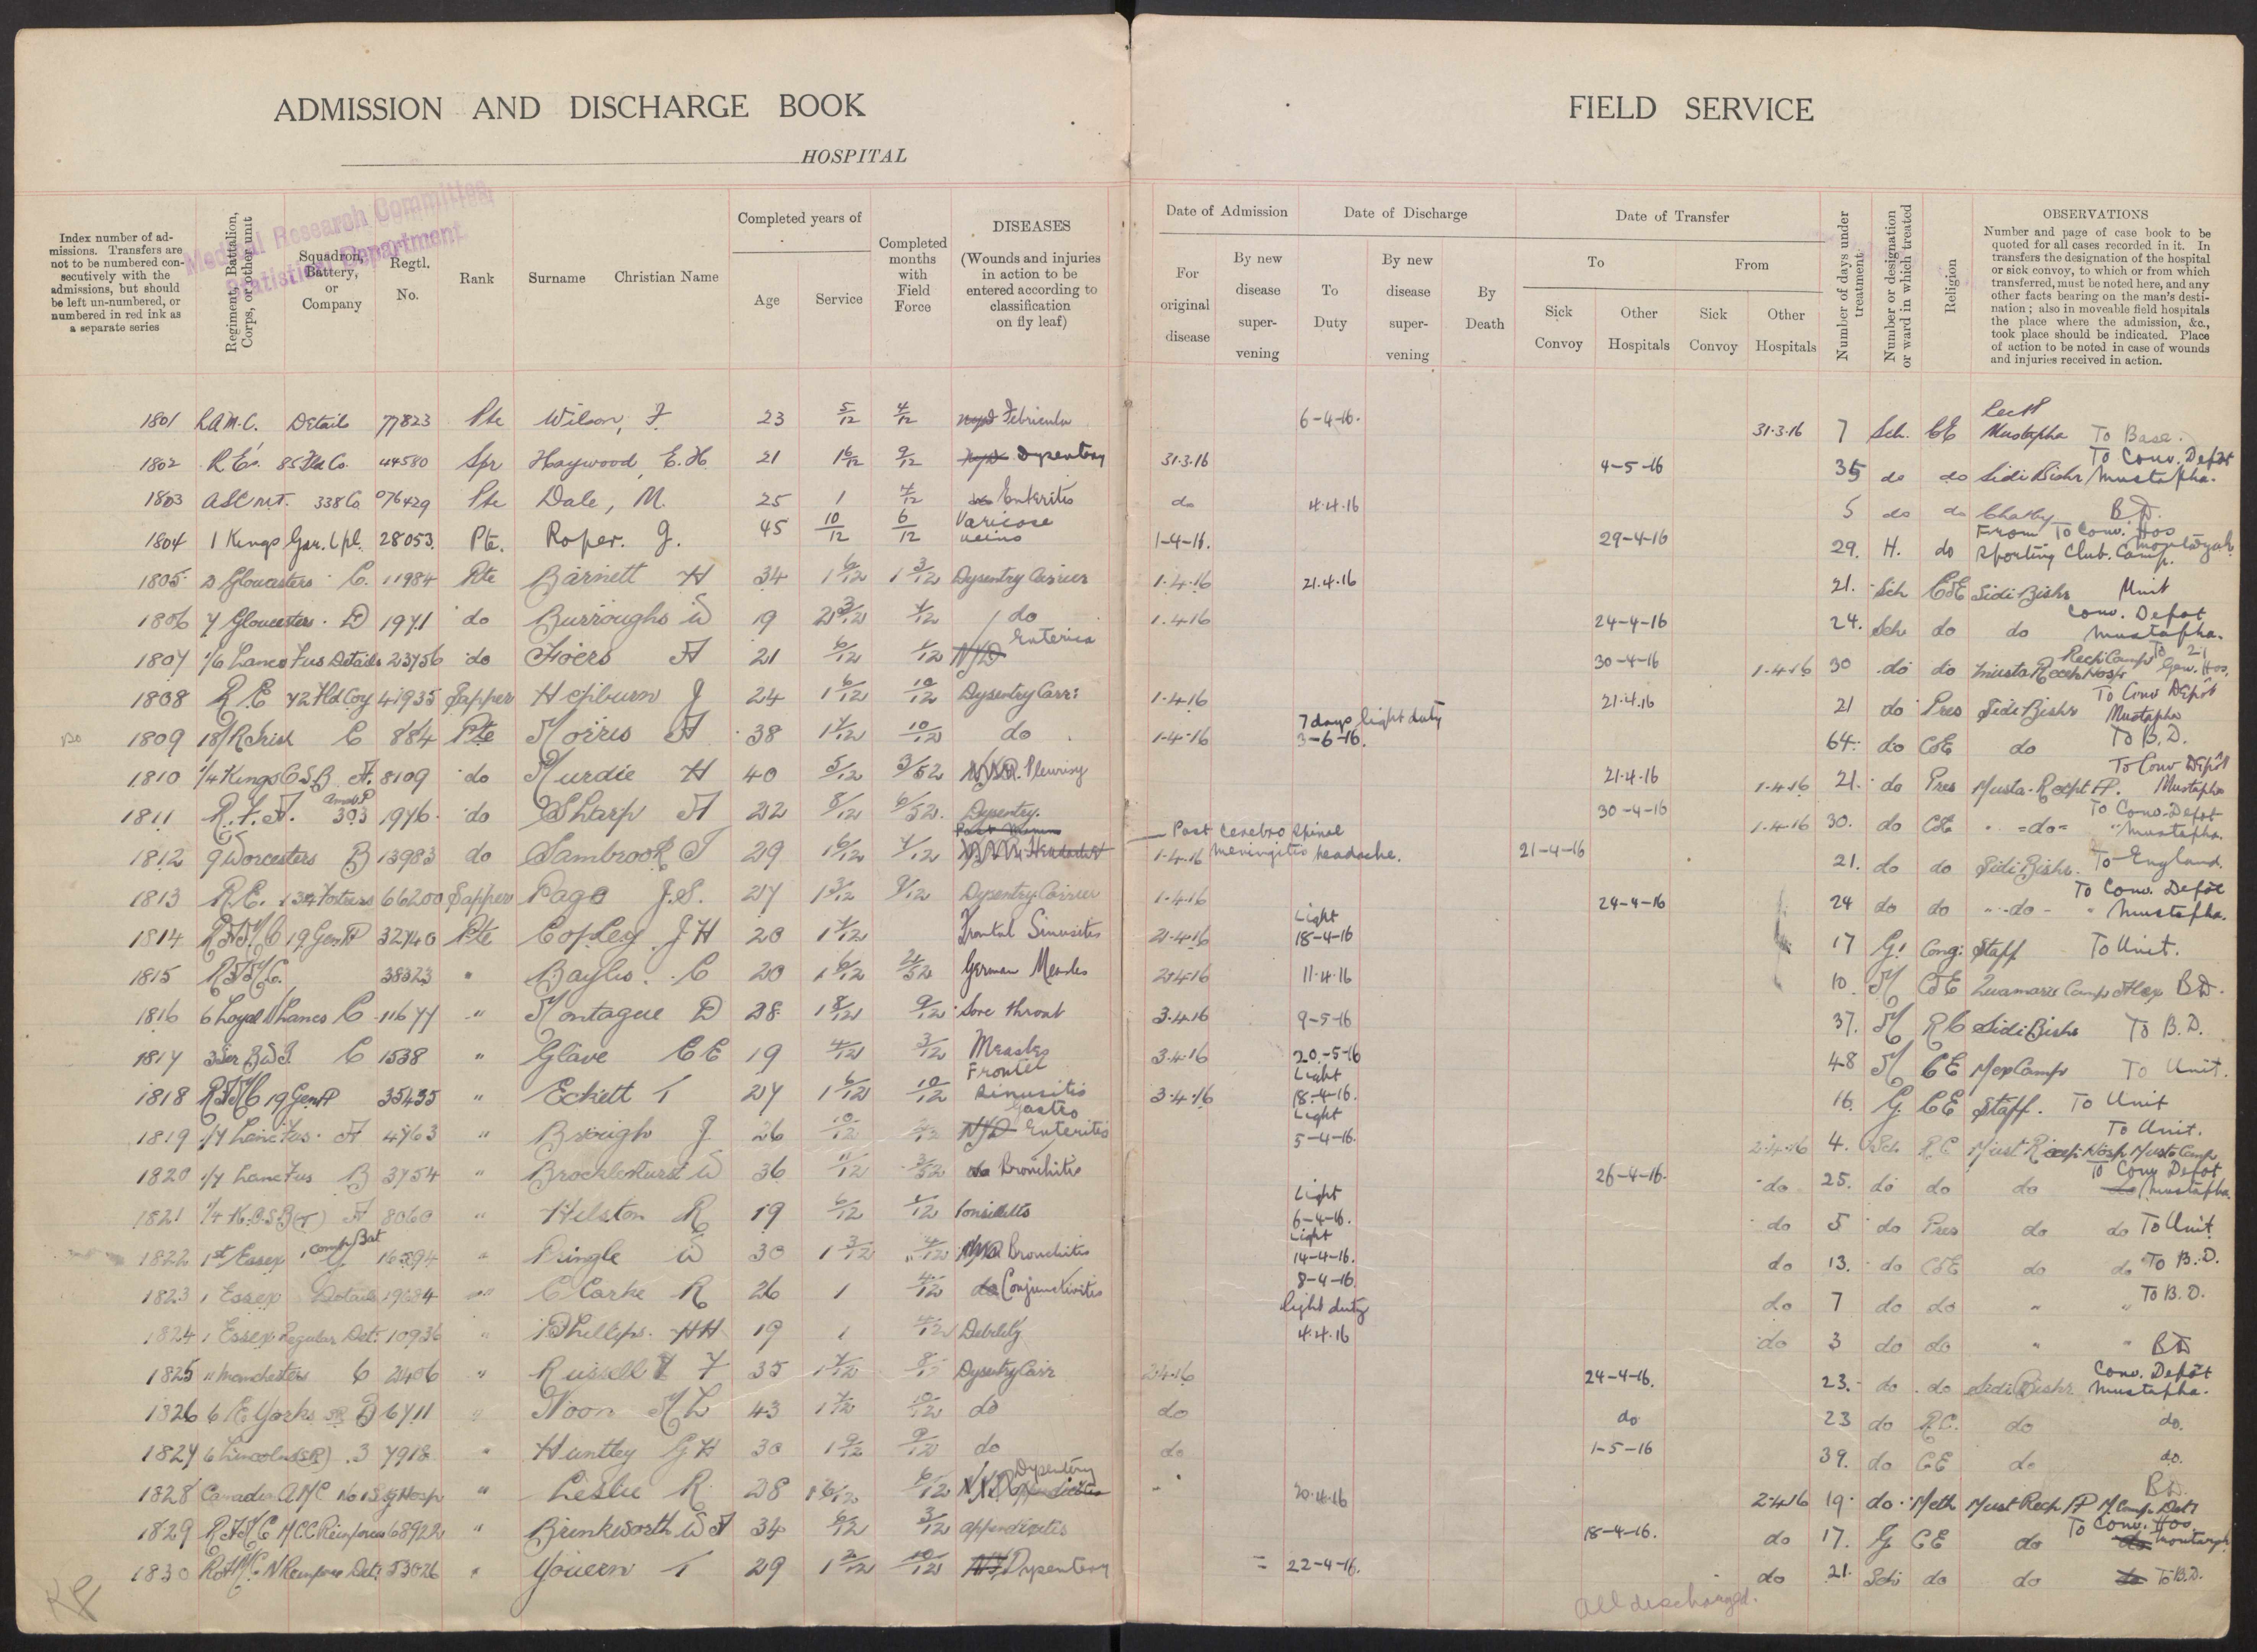 ADMISSION AND DISCHARGE BOOK
HOSPITAL
FIELD SERVICE
Medical Research Committee,
Statistical Department.
Index number of admissions. Transfers are not to be numbered consecutively with the admissions, but should be left un-numbered, or numbered in red ink as a separate series
Regiment, Battalion, Corps, or other unit
Squadron, Battery, or Company
Regtl. No.
Rank
Surname Christian Name
Completed years of
Age
Service
Completed months with Field Force
DISEASES
(Wounds and injuries in action to be entered according to classification on fly leaf)
Date of Admission
For original disease
By new disease supervening
Date of Discharge
To Duty
By new disease supervening
By Death
Date of Transfer
To
From
Sick Convoy
Other Hospitals
Sick Convoy
Other Hospitals
Number of days under treatment
Number or designation or ward in which treated
Religion
OBSERVATIONS
Number and page of case book to be quoted for all cases recorded in it. In transfers the designation of the hospital or sick convoy, to which or from which transferred, must be noted here, and any other facts bearing on the man's destination; also in moveable field hospitals the place where the admission, &c., took place should be indicated. Place of action to be noted in case of wounds and injuries received in action.
1801 R.A.M.C. Details 77823 Pte Wilson, F. 23 5/12 4/12 Febricula 6-4-16. 31.3.16 7 Sch. CE Mustapha To Base.
1802 R.E. 85 Fld Co. 44580 Spr Haywood, E.H. 21 1 6/12 9/12 Dysentery 31.3.16 4-5-16 35 do do Sidi Bishr To Conv. Depôt Mustapha.
1803 ASC M.T. 338 Co. 076429 Pte Dale, M. 25 1 4/12 Enteritis do 4.4.16 5 do do Chatby B.D.
1804 1 Kings Gar. 28053. Pte. Roper. J. 45 10/12 6/12 Varicose veins 1-4-16. 29-4-16 29. H. do From Sporting Club. To Conv. Hos Camp.
1805 Gloucesters C. 11984 Pte Barnett H 34 1 6/12 1 3/12 Dysentry Carrier 1.4.16 21.4.16 21. Sch CofE Sidi Bishr Unit
1806 7 Gloucesters. D 1971 do Burroughs W 19 4/12 do 1.4.16 24-4-16 24. Sch do do Conv. Depot Mustapha.
1807 1/6 Lancs Fus Details 23756 do A 21 6/12 NYD Enterica 30-4-16 1-4-16 30 do do Musta Recep Hosp To 21 Gen. Hos.
1808 R.E 72 Fld Coy 41935 Sapper Hepburn J 24 1 6/12 10/12 Dysentry Carr: 1-4-16 21.4.16 21 do Pres Sidi Bishr To Conv Depôt Mustapha
1809 R Irish C 884 Pte Morris A 38 10/12 do 1-4-16 7 days light duty 3-6-16. 64. do CofE do To B.D.
1810 1/4 Kings O S B A. 8109 do Murdie H 40 5/12 3/52 Pleurisy 21.4.16 1-4-16 21. do Pres Musta. Recpt H. To Conv Depôt Mustapha
1811 R.F.A. 303 1976. do Sharp A 22 8/12 6/52. Dysentry. 30-4-16 1-4-16 30. do CofE =do= To Conv. Depot Mustapha.
1812 9 Worcesters B 13983 do Sambrook J 29 1 6/12 Post Cerebro Spinal Meningitis headache. 1-4-16 21-4-16 21. do do Sidi Bishr. To England.
1813 R.E. Fortress 66200 Sapper Page J.S. 27 1 3/12 9/12 Dysentry Carrier 1-4-16 24-4-16 24 do do -do- To Conv. Depôt Mustapha.
1814 RAMC 19 Gen H 32740 Pte Copley J H 20 Frontal Sinusetes 2.4.16 Light 18-4-16 17 G. Cong: Staff To Unit.
1815 RAMC. 38323 " Baylis. C 20 1 6/12 German Measles 2.4.16 11.4.16 10 M CofE Camp Alex B.D.
1816 6 Loyal N Lancs C 11677 " Montague D 28 1 8/12 9/12 Sore throat 3.4.16 9-5-16 37. M R C Sidi Bishr To B.D.
1817 C 1538 " Glave C E 19 4/12 3/12 Measles 3.4.16 20-5-16 48 M C E Mex Camp To Unit.
1818 RAMC 19 Gen H 35435 " Eckett T 27 1 6/12 10/12 Frontel sinusitis 3.4.16 Light 18-4-16. 16. G. C E Staff. To Unit
1819 1/7 Lanc Fus. A 4763 " Brough J 26 10/12 NYD Gastro Enteritis Light 5-4-16. 2.4.16 4. Sch. R.C Must Recep Hosp Musta Camp To Unit.
1820 1/7 Lanc Fus B 3754 " Brocklehurst W 36 11/12 3/52 do Bronchitis 26-4-16. do 25. do do do To Conv Depot Mustapha.
1821 1/4 K.O.S.B (T) A 8060 " Helston R 19 6/12 Tonsilitis Light 6-4-16. do 5 do Pres do do To Unit
1822 1st Essex Comp Bat 16594 " Pringle W 30 1 3/12 4/12 Bronchitis Light 14-4-16. do 13. do CofE do do To B.D.
1823 1 Essex Details 19684 " Clarke R 26 1 4/12 do Conjunctivitis 8-4-16 do 7 do do " " To B.D.
1824 1 Essex Regular Det: 10936 " Phillips. H H 19 1 4/12 Debility light duty 4.4.16 do 3 do do " " B.D
1825 11 Manchesters C 2406 " Russell F 35 Dysentry Carr 2.4.16 24-4-16. 23. do do Sidi Bishr Conv. Depôt Mustapha.
1826 6 E Yorks B 6711 " Noon M L 43 10/12 do do do 23 do R.C. do do.
1827 6 Lincolns (SR) 3 7918 " Huntley G H 30 1 9/12 9/12 do do 1-5-16 39. do C E do do.
1828 Canadian AMC No 1 Hosp " Leslie R. 28 1 6/12 6/12 Dysentery 20.4.16 2.4.16 19. do. Meth Must Recep H M. Camp Dets B.D.
1829 RAMC 68922 " Brinkworth W A 34 3/12 appendizetis 18-4-16. do 17. G C E do To Conv. Hos
1830 RAMC. Det: 53026 " T 29 1 2/12 10/12 Dysentery = 22-4-16. do 21. Sch do do To B.D.
All discharged.